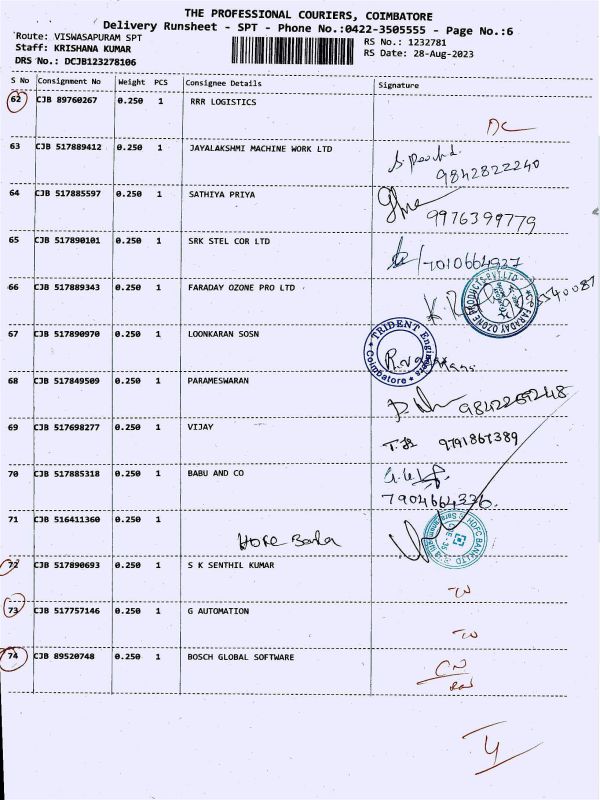 THE PROFESSIONAL COURIERS, COIMBATORE
Delivery Runsheet - SPT - Phone No.:0422-3505555 - Page No.:6
Route: VISWASAPURAM SPT
Staff: KRISHANA KUMAR
DRS No.: DCJB123278106
RS No.: 1232781
RS Date: 28-Aug-2023
S No Consignment No Weight PCS Consignee Details Signature
62 CJB 89760267 0.250 1 RRR LOGISTICS
DC
63 CJB 517889412 0.250 1 JAYALAKSHMI MACHINE WORK LTD
9842822240
64 CJB 517885597 0.250 1 SATHIYA PRIYA
9976399779
65 CJB 517890101 0.250 1 SRK STEL COR LTD
7010664937
66 CJB 517889343 0.250 1 FARADAY OZONE PRO LTD
FARADAY OZONE PRODUCTS PVT LTD
67 CJB 517890970 0.250 1 LOONKARAN SOSN
TRIDENT Engineers
Coimbatore
68 CJB 517849509 0.250 1 PARAMESWARAN
9842269248
69 CJB 517698277 0.250 1 VIJAY
9791867389
70 CJB 517885318 0.250 1 BABU AND CO
7904664336
71 CJB 516411360 0.250 1
HDFC Bank
HDFC BANK LTD
72 CJB 517890693 0.250 1 S K SENTHIL KUMAR
73 CJB 517757146 0.250 1 G AUTOMATION
74 CJB 89520748 0.250 1 BOSCH GLOBAL SOFTWARE
CN